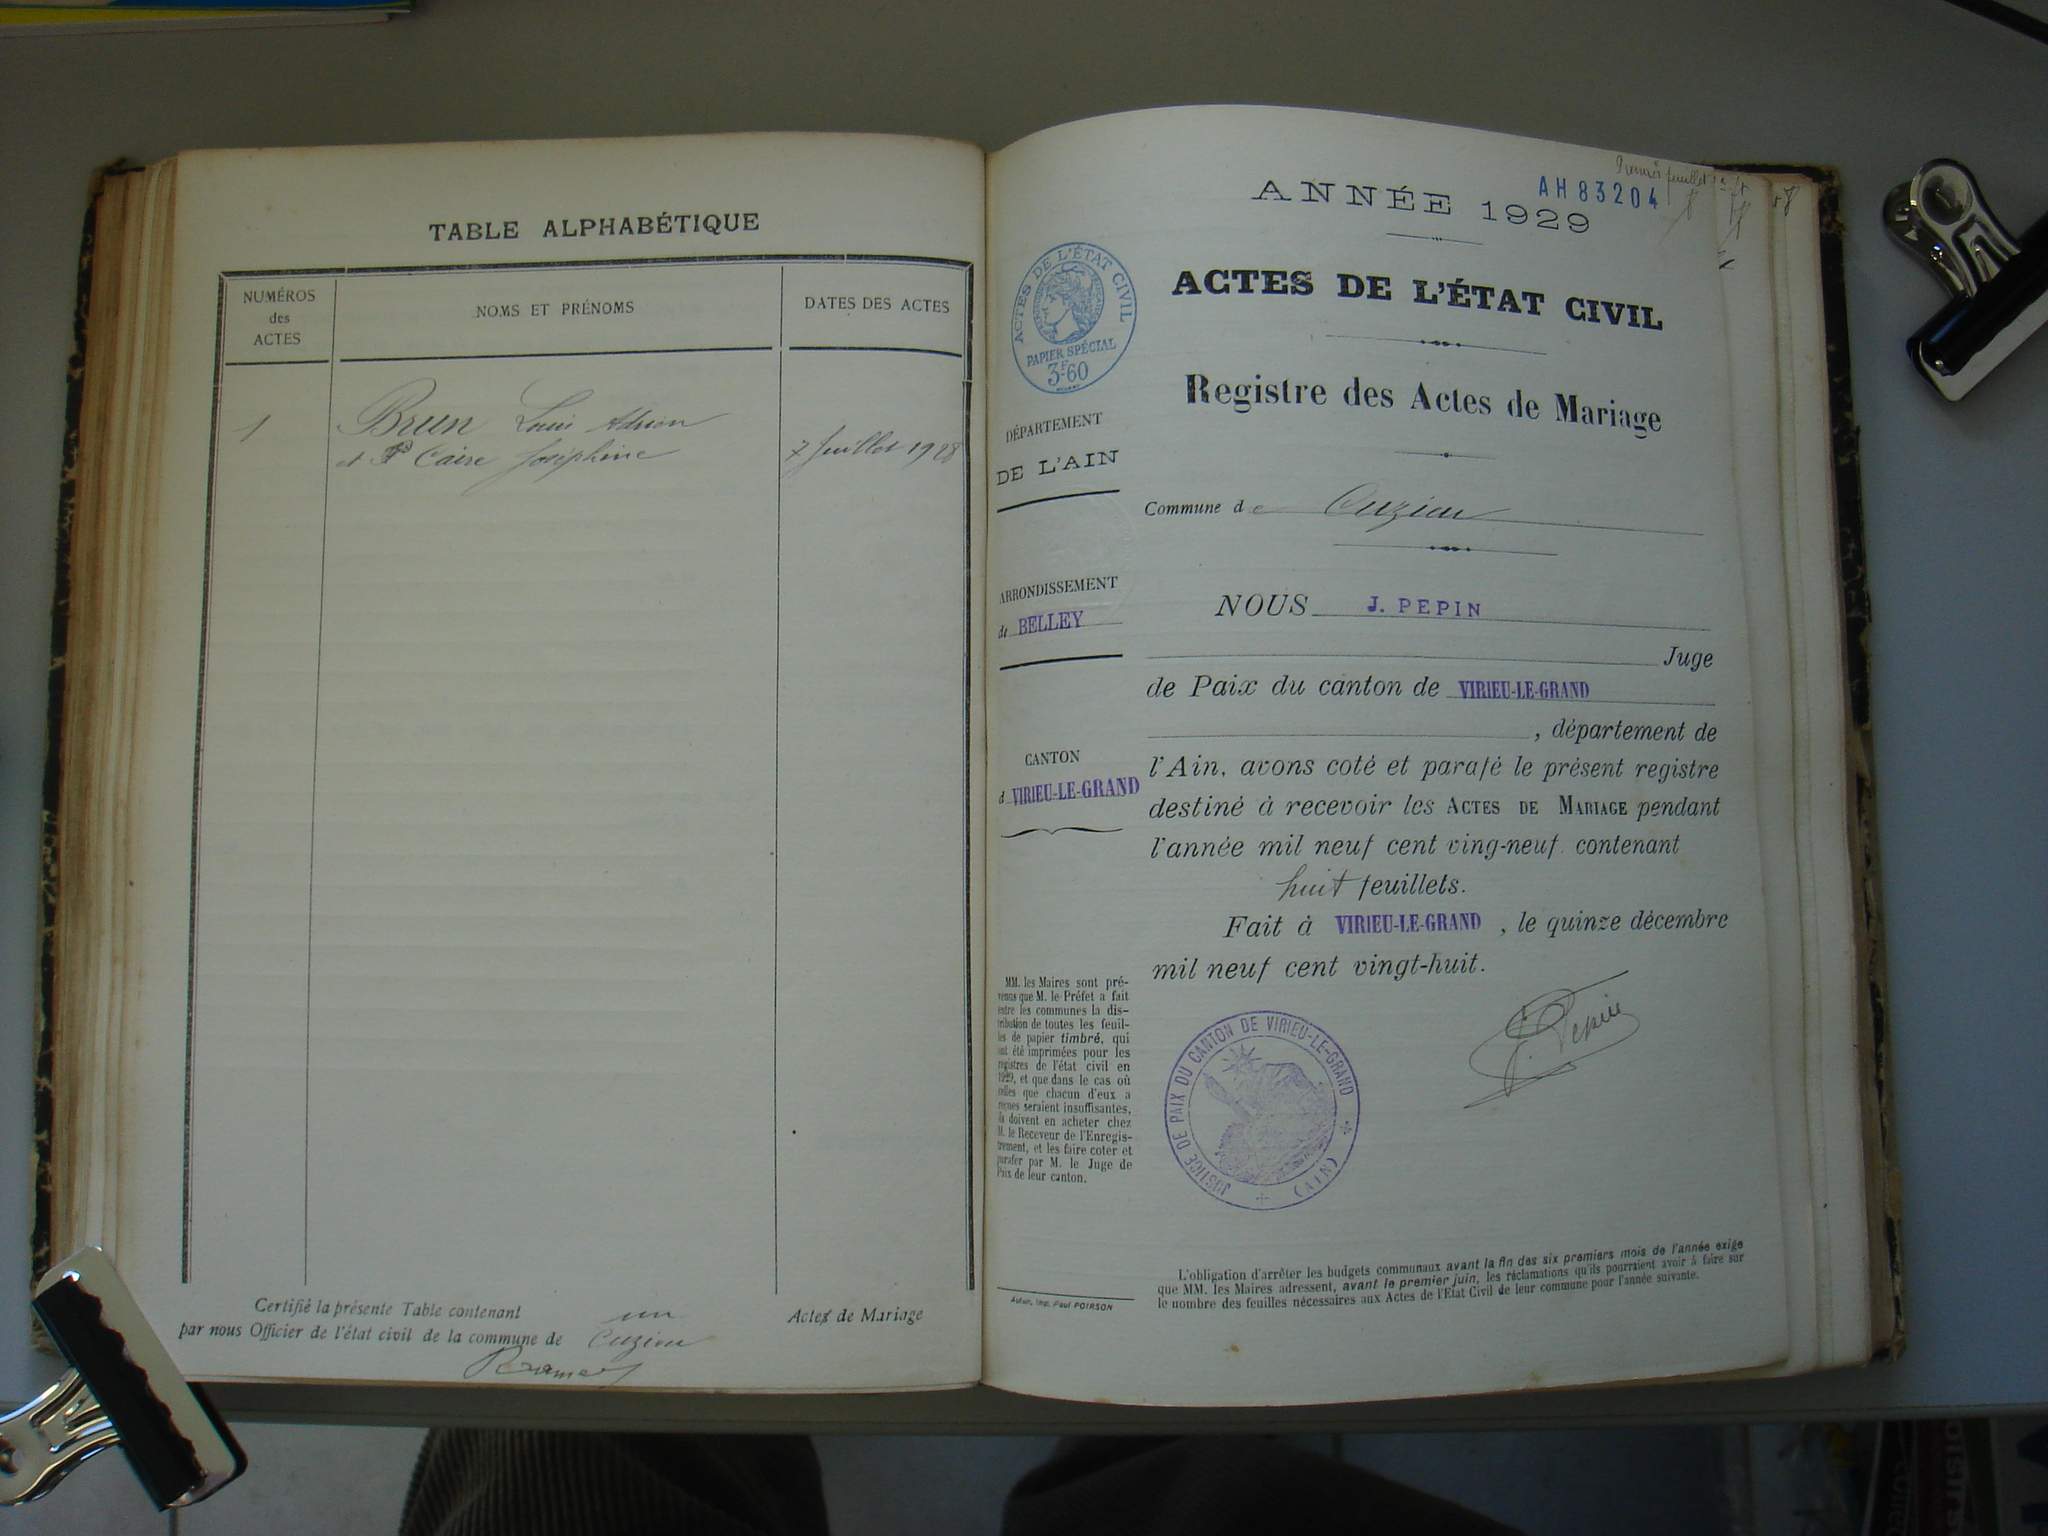 TABLE ALPHABÉTIQUE
NUMÉROS
des
ACTES
NOMS ET PRÉNOMS
DATES DES ACTES
1
Brun Louis Adrien
et Caire Joséphine
7 Juillet 1928
Certifié la présente Table contenant un Actes de Mariage
par nous Officier de l'état civil de la commune de Cuzieu
AH83204
ANNÉE 1929
ACTES DE L'ÉTAT CIVIL
PAPIER SPÉCIAL
3F60
ACTES DE L'ÉTAT CIVIL
Registre des Actes de Mariage
DÉPARTEMENT
DE L'AIN
Commune de Cuzieu
ARRONDISSEMENT
de BELLEY
CANTON
d VIRIEU-LE-GRAND
NOUS J. PEPIN
Juge
de Paix du canton de VIRIEU-LE-GRAND
, département de
l'Ain, avons coté et parafé le présent registre
destiné à recevoir les ACTES DE MARIAGE pendant
l'année mil neuf cent ving-neuf contenant
huit feuillets.
Fait à VIRIEU-LE-GRAND, le quinze décembre
mil neuf cent vingt-huit.
J. Pepin
MM. les Maires sont pré-
venus que M. le Préfet a fait
entre les communes la dis-
tribution de toutes les feuil-
les de papier timbré, qui
ont été imprimées pour les
registres de l'état civil en
1929, et que dans le cas où
celles que chacun d'eux a
reçues seraient insuffisantes,
ils doivent en acheter chez
M. le Receveur de l'Enregis-
trement, et les faire coter et
parafer par M. le Juge de
Paix de leur canton.
JUSTICE DE PAIX DU CANTON DE VIRIEU-LE-GRAND
(AIN)
L'obligation d'arrêter les budgets communaux avant la fin des six premiers mois de l'année exige
que MM. les Maires adressent, avant le premier juin, les réclamations qu'ils pourraient avoir à faire sur
le nombre des feuilles nécessaires aux Actes de l'Etat Civil de leur commune pour l'année suivante.
Autun, Imp. Paul POIRSON